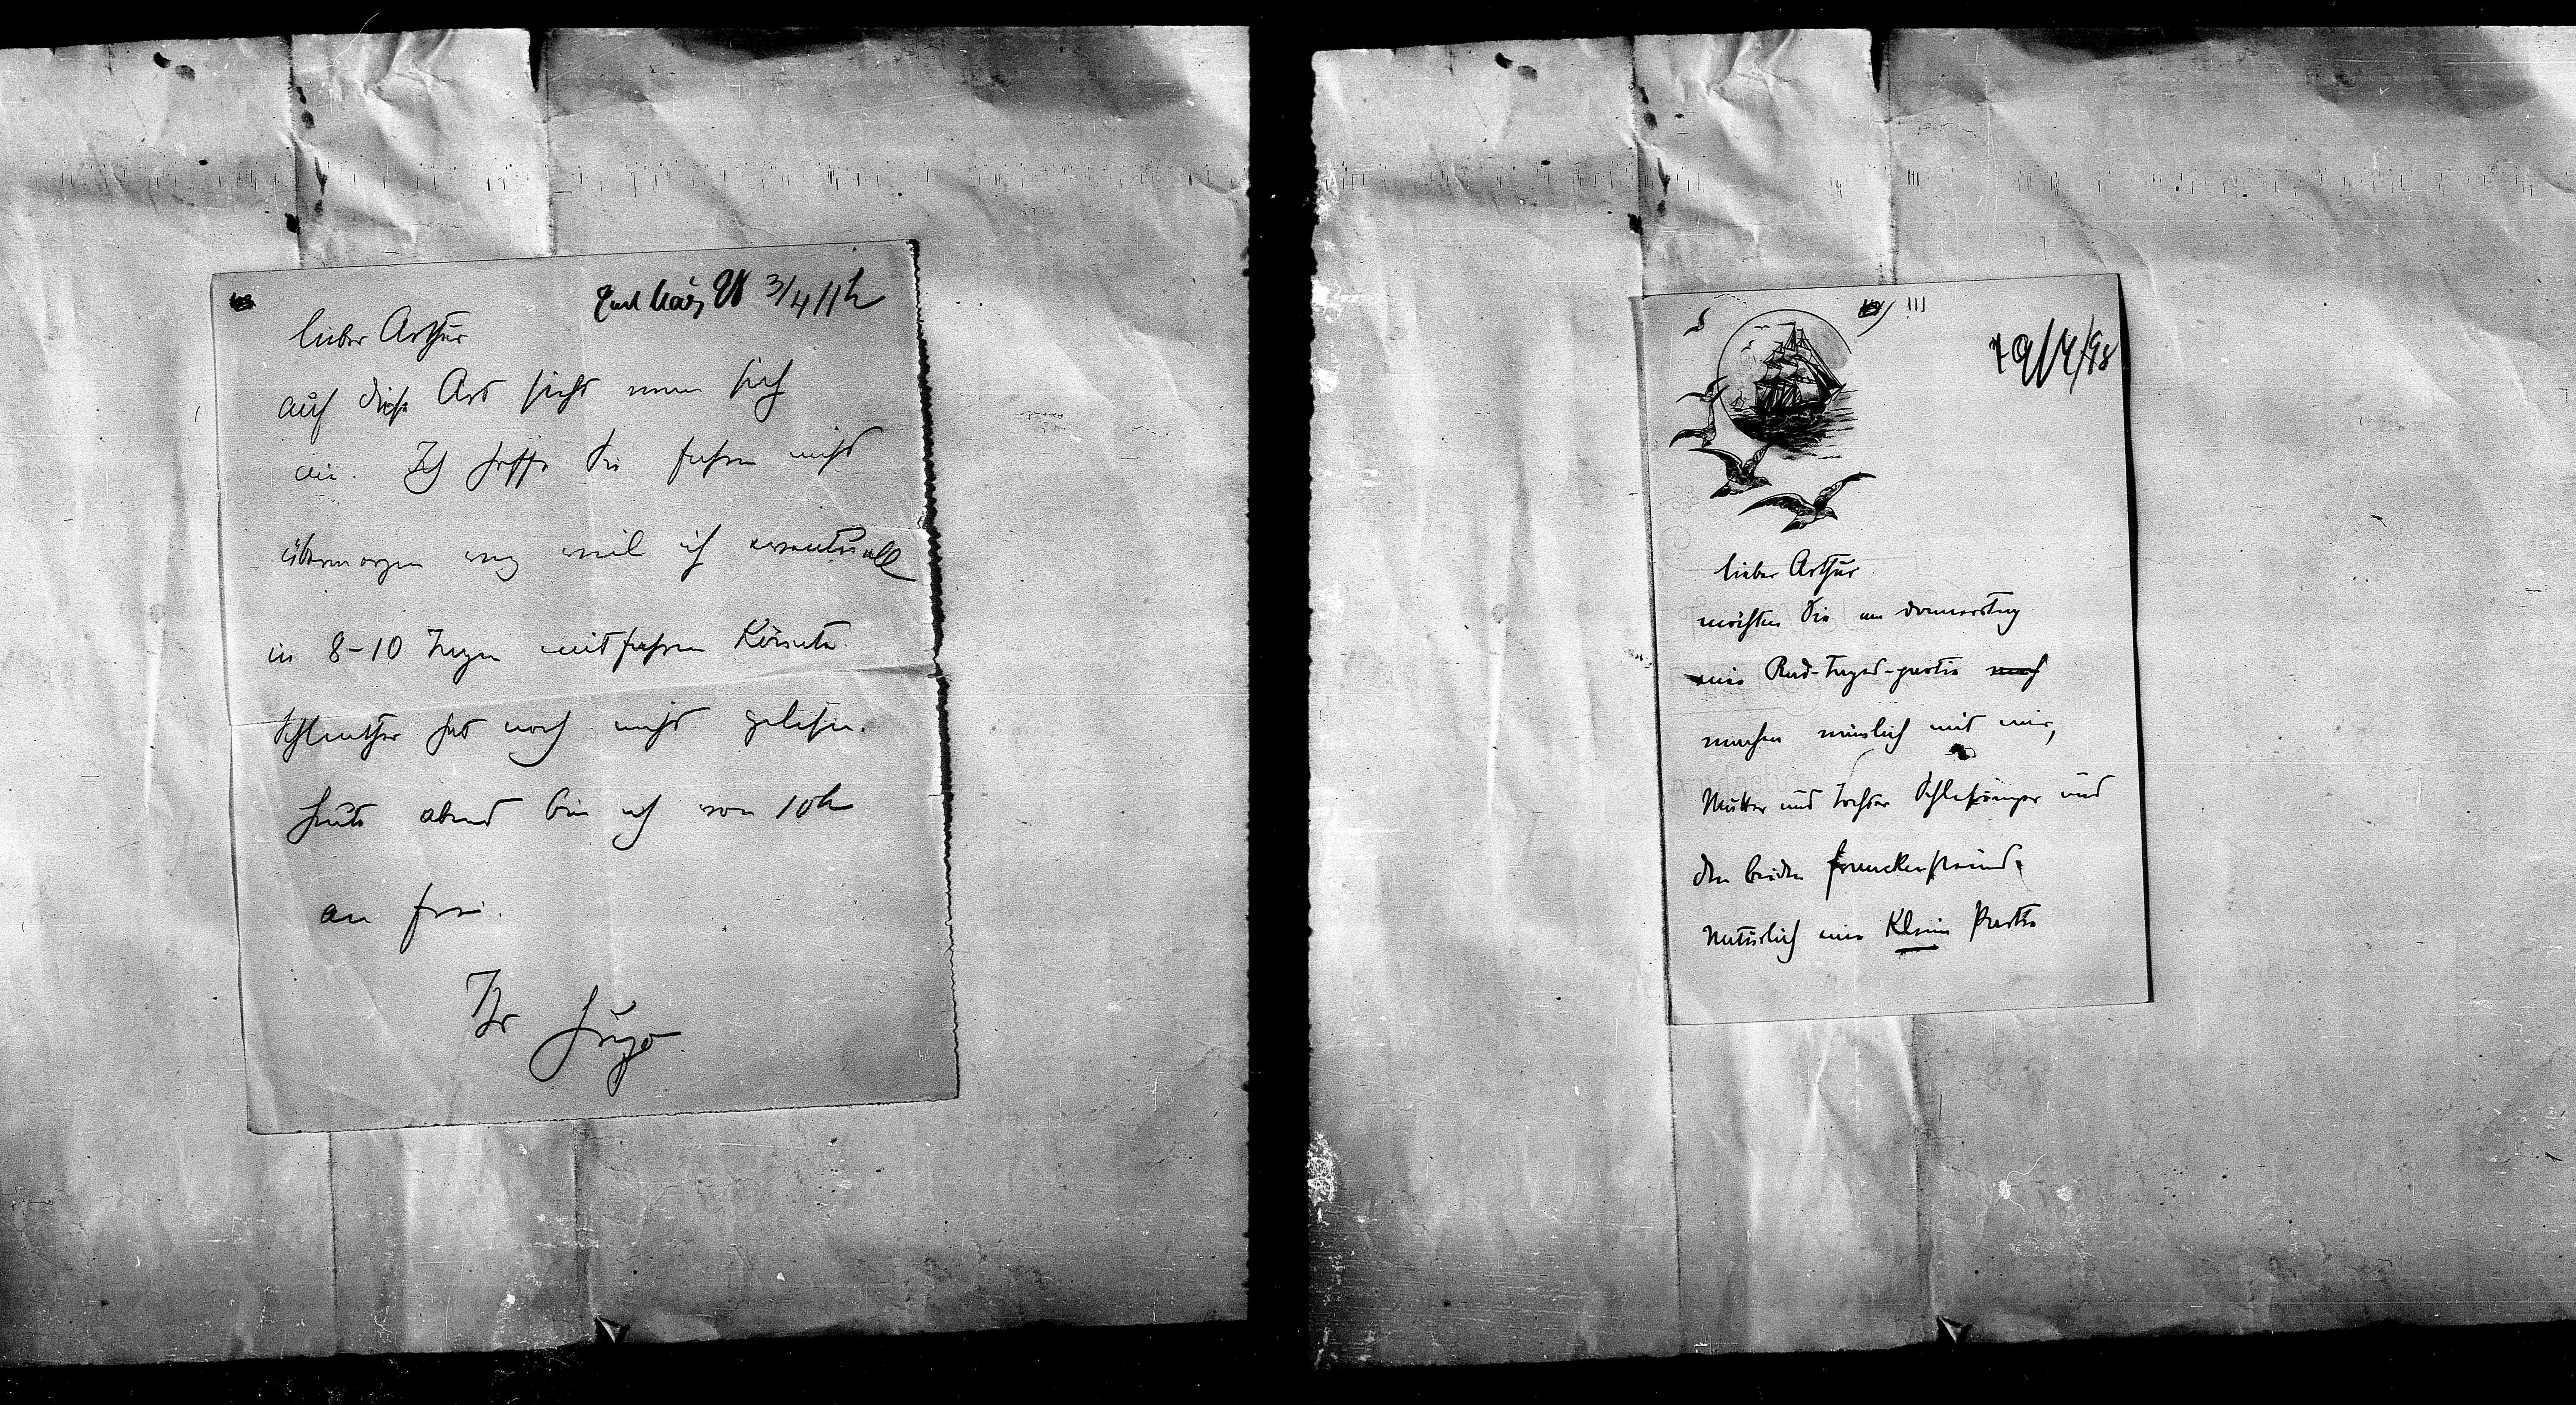 Ende März 98 3/4 11h
lieber Arthur
auf diese Art sieht man sich
nie. Ich hoffe Sie fahren nicht
übermorgen weg weil ich eventuell
in 8–10 Tagen mitfahren könnte.
Schlenther hat noch nicht gelesen.
heute abend bin ich von 10h
an frei.
Ihr Hugo
19/4/98
lieber Arthur
möchten Sie am donnerstag
eine Rad-Tages-partie nach
machen nämlich mit mir,
Mutter und Tochter Schlesinger und
den beiden franckensteins.
Natürlich eine kleine Partie